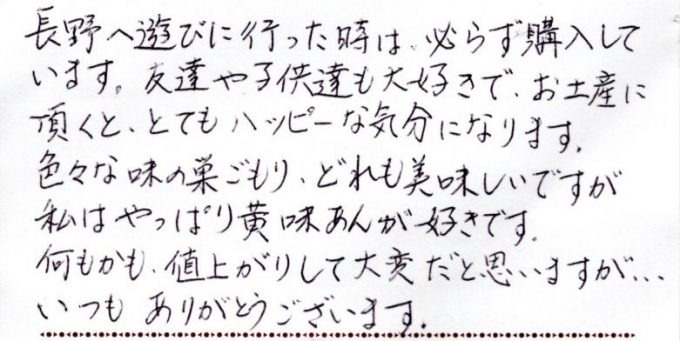 長野へ遊びに行った時は、必らず購入して
います。友達や子供達も大好きで、お土産に
頂くと、とてもハッピーな気分になります。
色々な味の巣ごもり、どれも美味しいですが
私はやっぱり黄味あんが好きです。
何もかも、値上がりして大変だと思いますが...
いつも ありがとうございます。